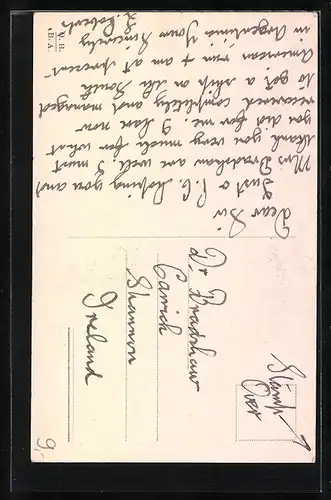 Dear Sir
Just a P.C. Hoping you and
Mrs Bradshaw are well. I must
thank you very much for what
you did for me I have now
recovered completely and managed
to get a ship on the South
American run & am at present
in Argentina Yours Sincerely
J. Roberts
Dr Bradshaw
Carrick
Shannon
Ireland
Stamp
Over
V. H.
B. A.
9,-